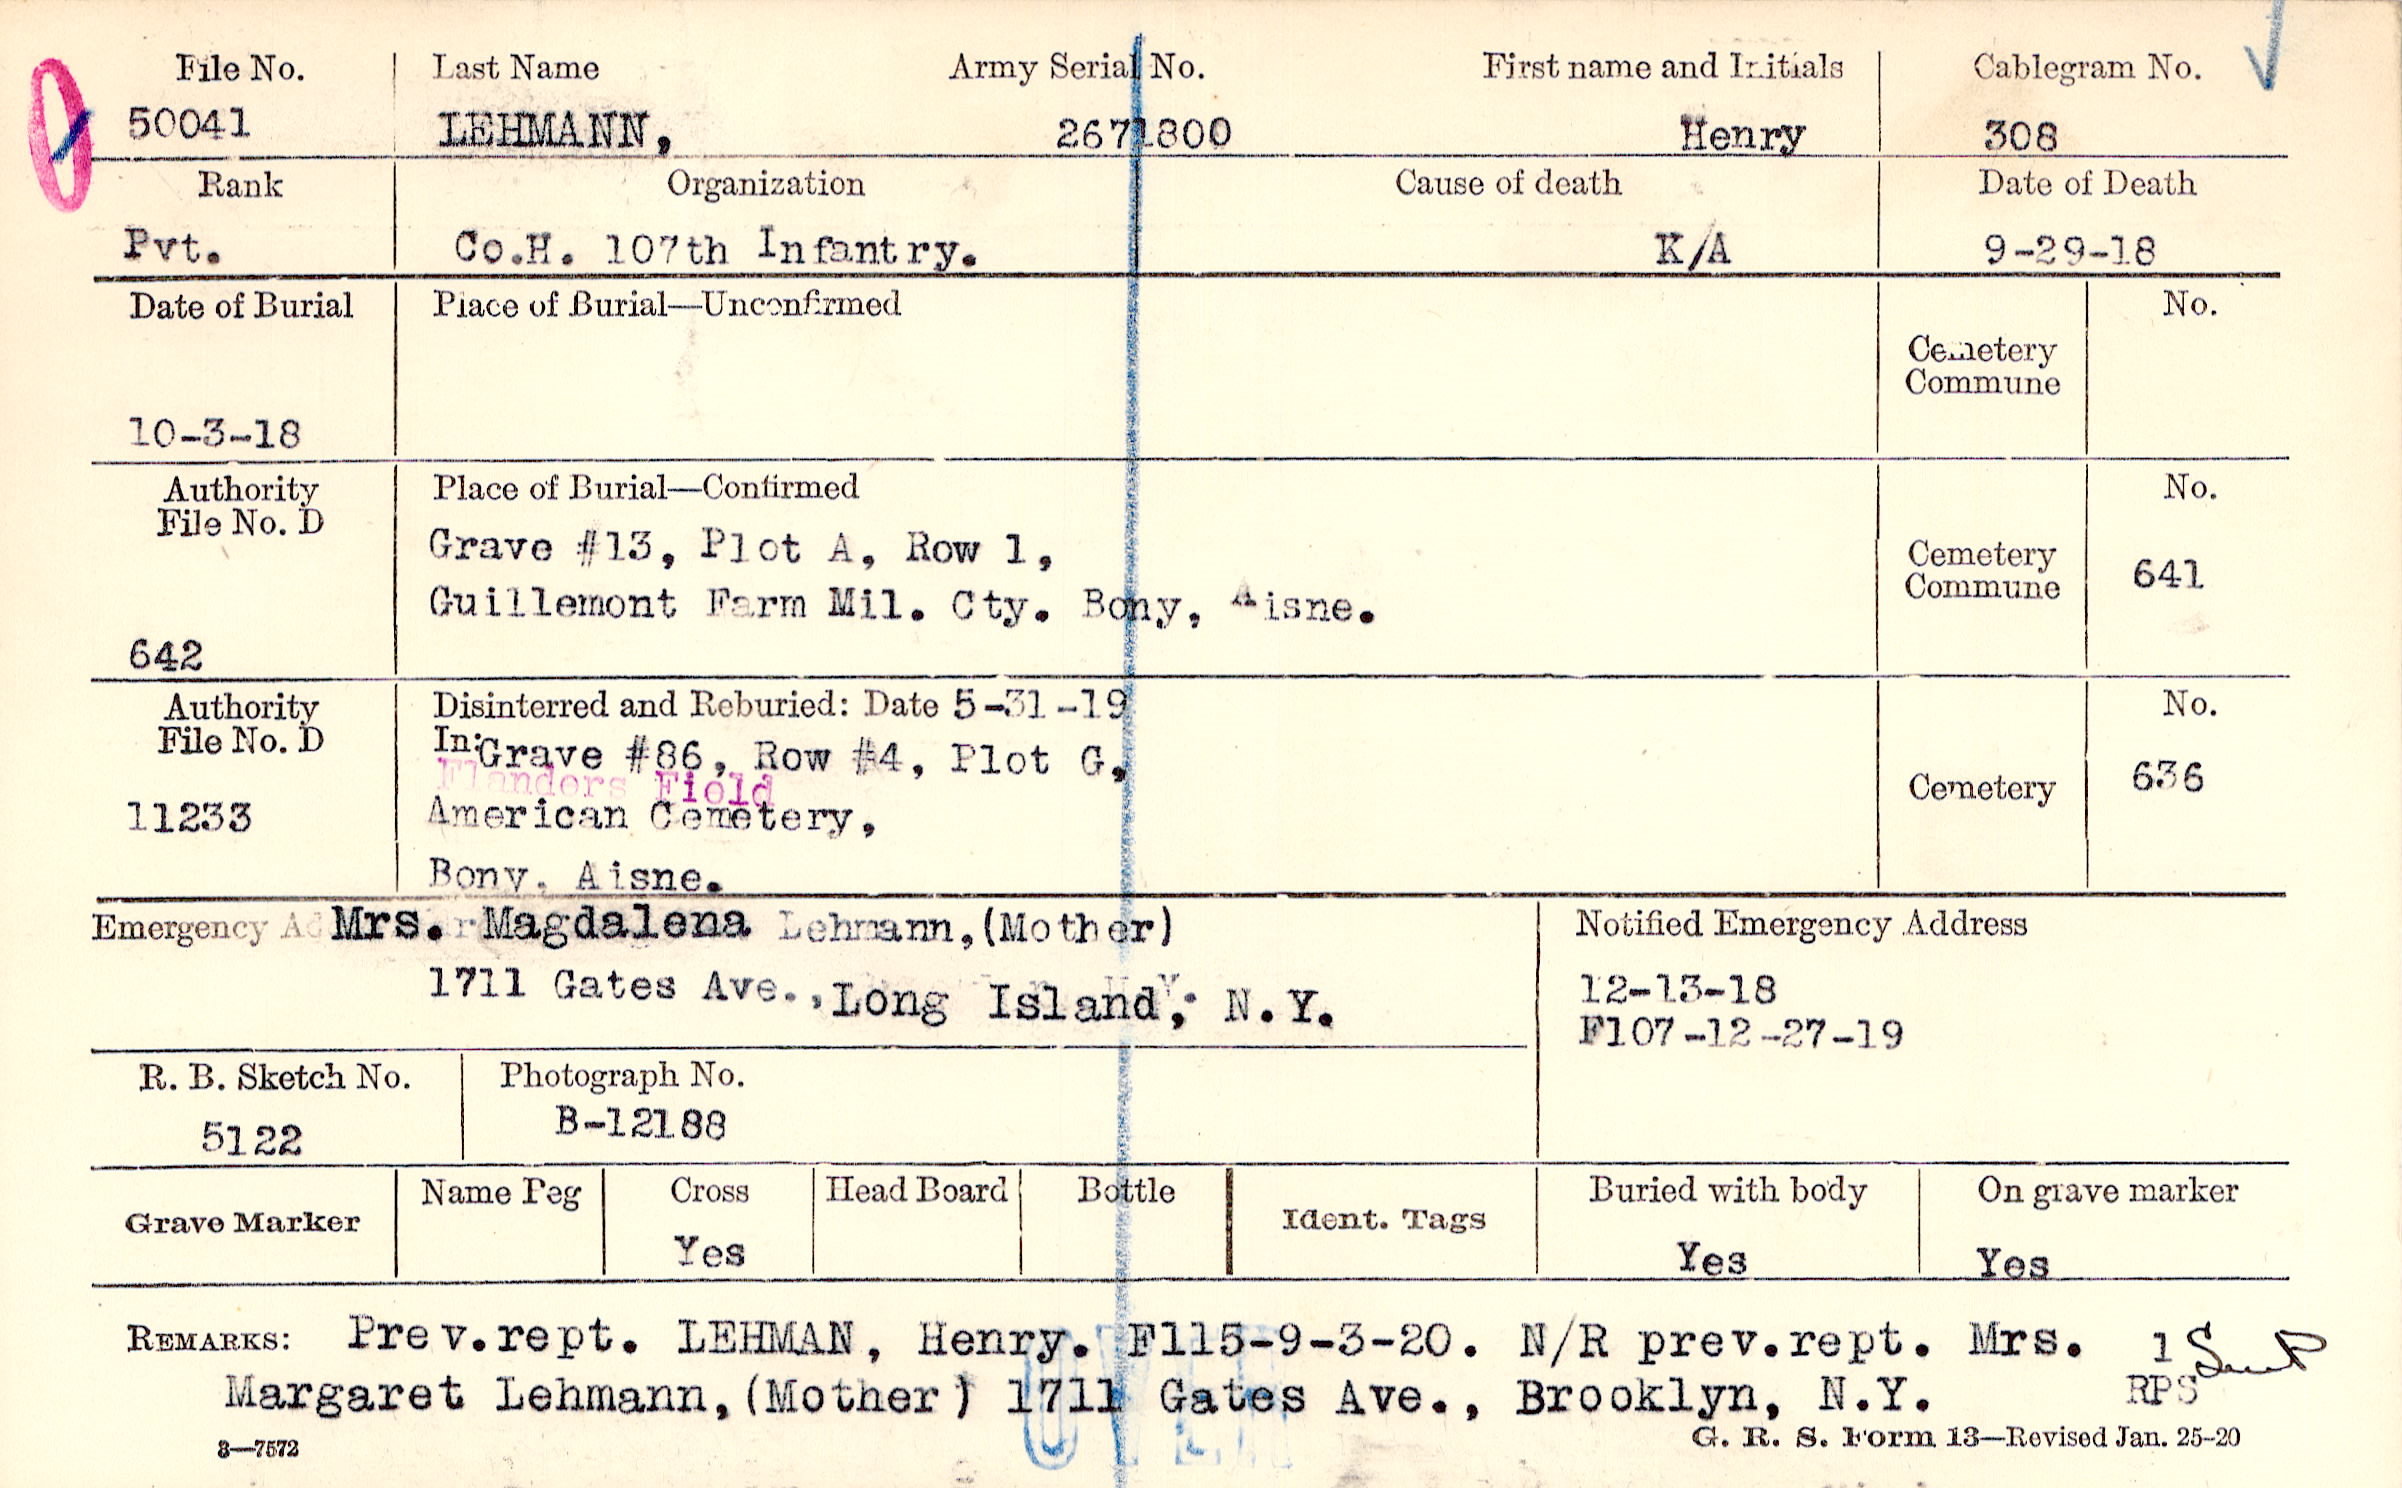 File No. Last Name Army Serial No. First name and Initials Cablegram No.
50041 LEHMANN, 2671800 Henry 308
Rank Organization Cause of death Date of Death
Pvt. Co.H. 107th Infantry. K/A 9-29-18
Date of Burial Place of Burial—Unconfirmed No.
Cemetery
Commune
10-3-18
Authority Place of Burial—Confirmed No.
File No. D
Grave #13, Plot A, Row 1,
Cemetery
Commune 641
Guillemont Farm Mil. Cty. Bony, Aisne.
642
Authority Disinterred and Reburied: Date 5-31-19 No.
File No. D In: Grave #86, Row #4, Plot G,
Flanders Field
Cemetery 636
11233 American Cemetery,
Bony, Aisne.
Emergency Mrs. Magdalena Lehmann,(Mother) Notified Emergency Address
1711 Gates Ave., Long Island, N.Y. 12-13-18
F107-12-27-19
R. B. Sketch No. Photograph No.
5122 B-12188
Grave Marker Name Peg Cross Head Board Bottle Ident. Tags Buried with body On grave marker
Yes Yes Yes
REMARKS: Prev.rept. LEHMAN, Henry. F115-9-3-20. N/R prev.rept. Mrs. 1
Margaret Lehmann,(Mother) 1711 Gates Ave., Brooklyn, N.Y. RPS
3—7572 G. R. S. Form 13—Revised Jan. 25-20